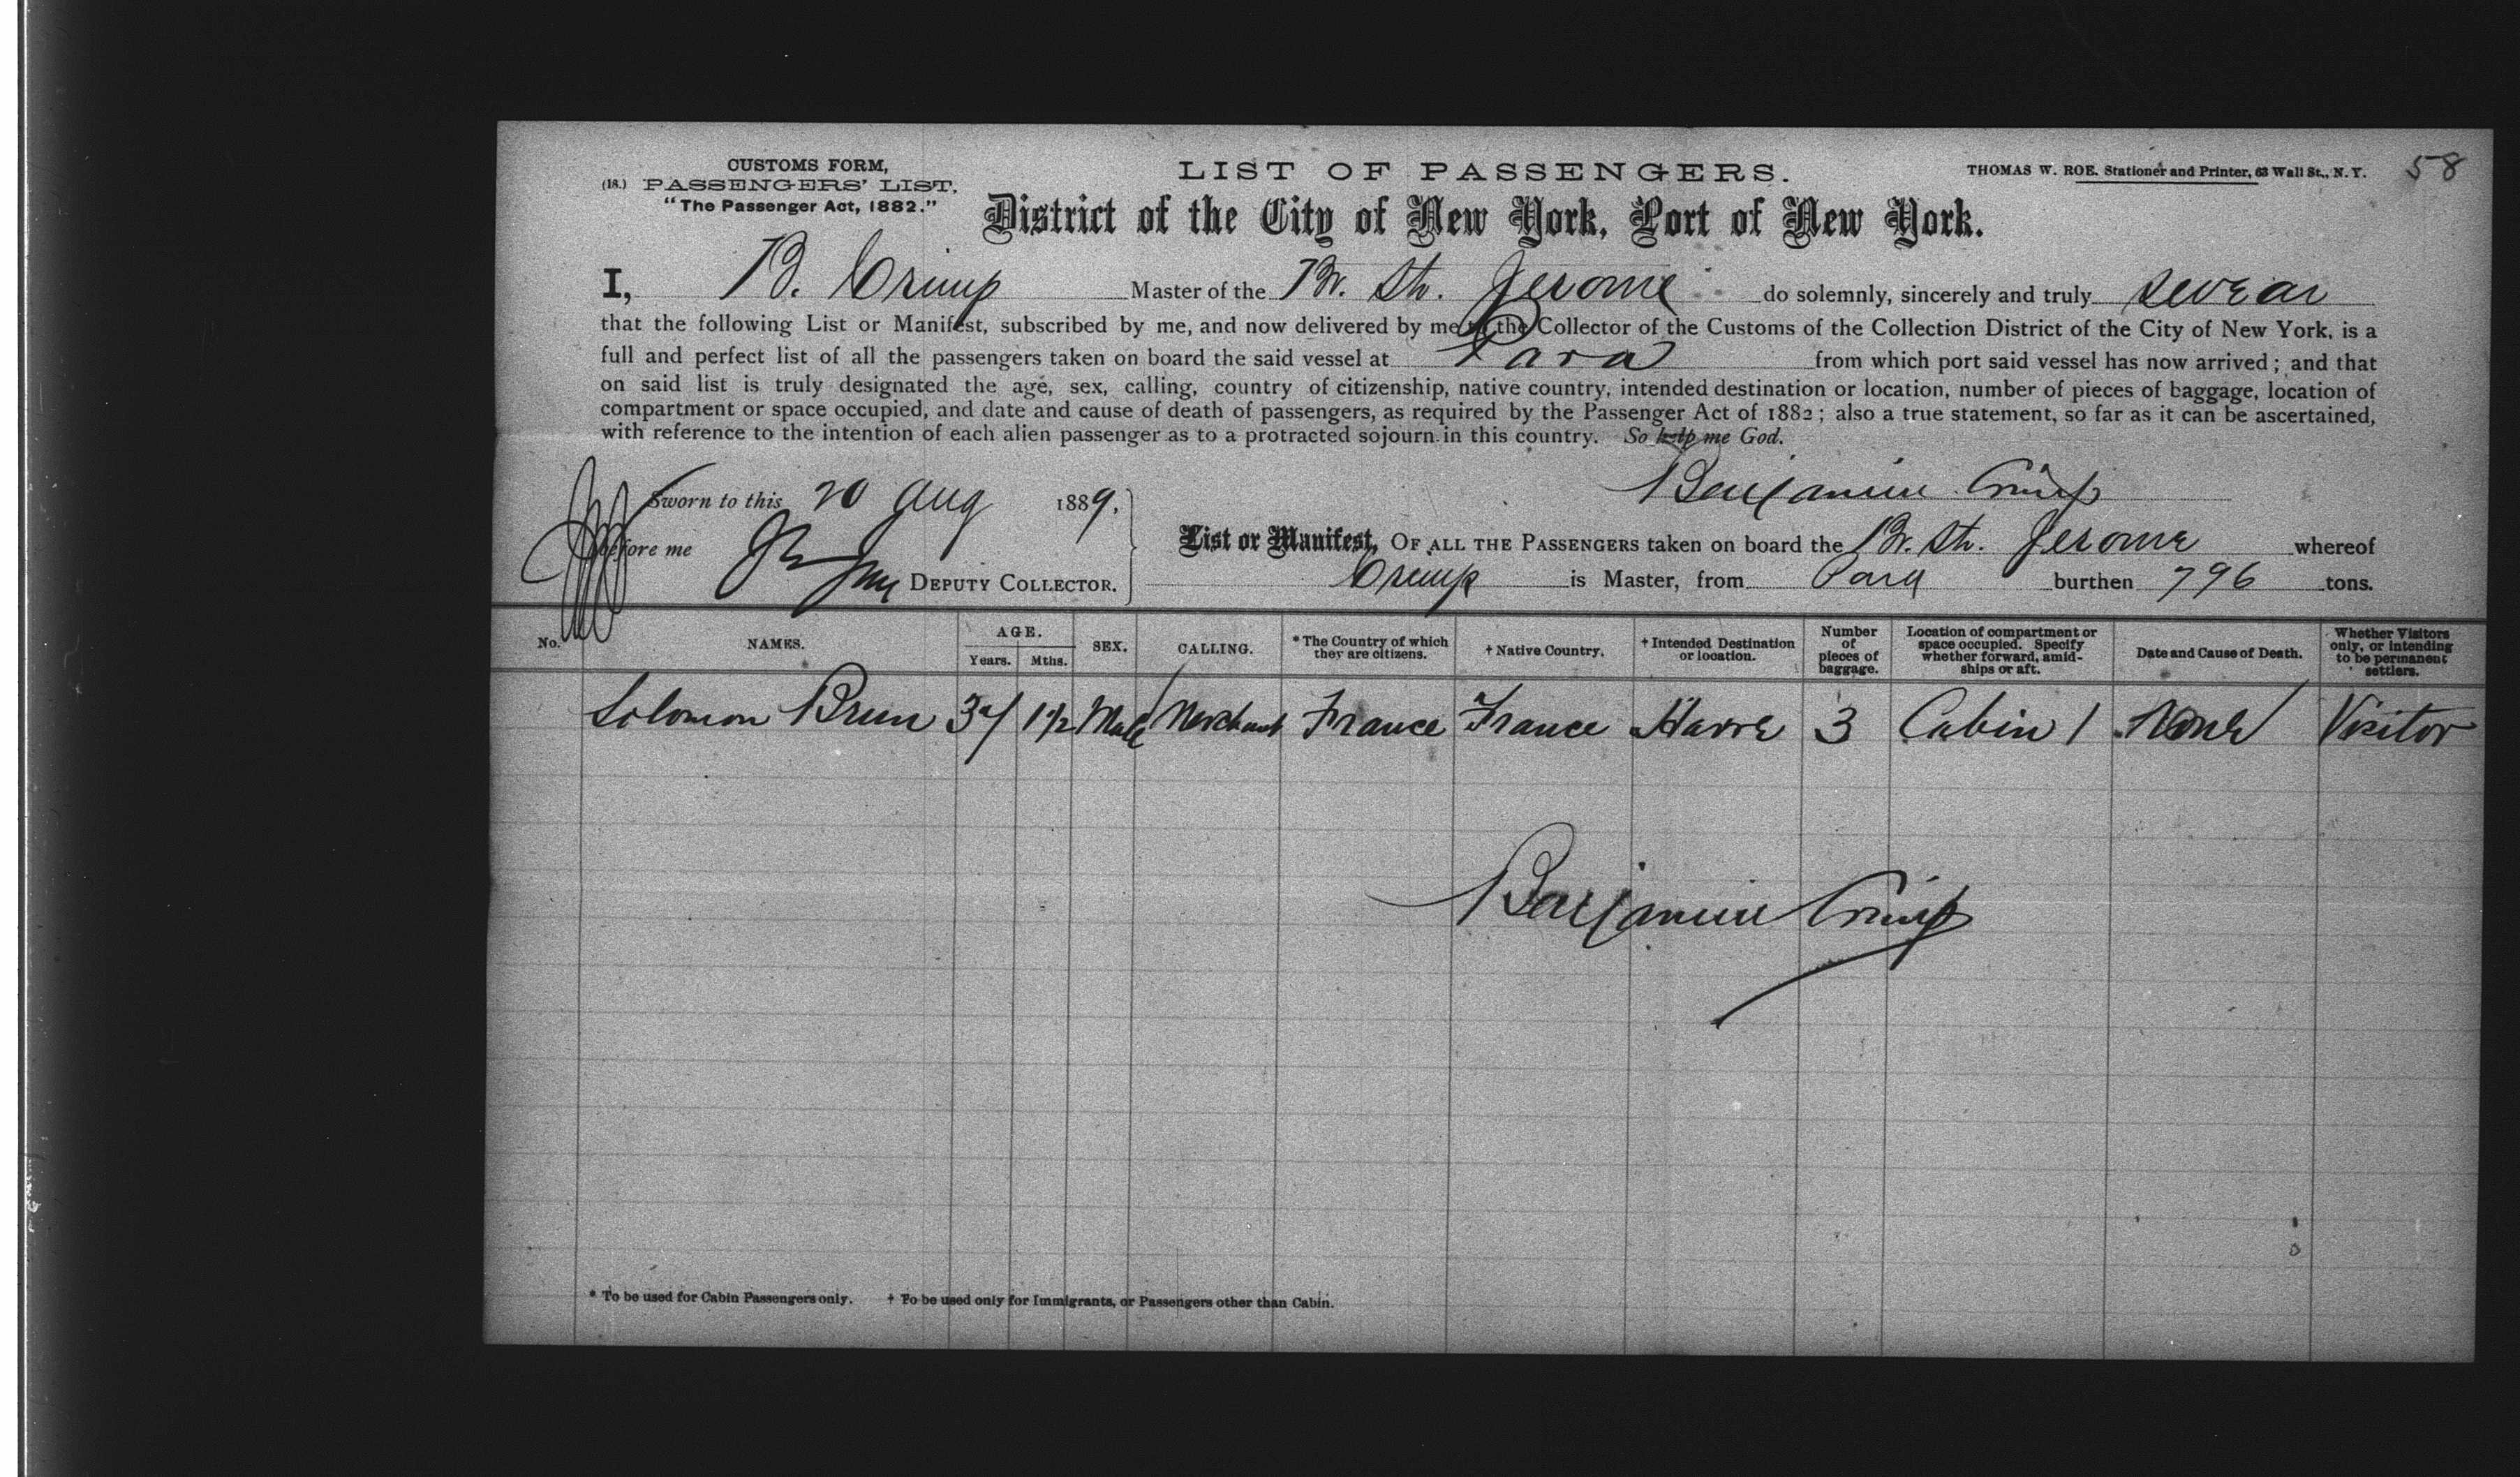 CUSTOMS FORM,
(18.) PASSENGERS' LIST.
"The Passenger Act, 1882."
LIST OF PASSENGERS.
THOMAS W. ROE. Stationer and Printer, 63 Wall St., N. Y.
58
District of the City of New York, Port of New York.
I, B. Crimp Master of the Br. Str. Jerome do solemnly, sincerely and truly swear
that the following List or Manifest, subscribed by me, and now delivered by me to the Collector of the Customs of the Collection District of the City of New York, is a
full and perfect list of all the passengers taken on board the said vessel at Para from which port said vessel has now arrived; and that
on said list is truly designated the age, sex, calling, country of citizenship, native country, intended destination or location, number of pieces of baggage, location of
compartment or space occupied, and date and cause of death of passengers, as required by the Passenger Act of 1882; also a true statement, so far as it can be ascertained,
with reference to the intention of each alien passenger as to a protracted sojourn in this country. So help me God.
Sworn to this 20 Aug 1889,
Benjamin Crimp
before me
DEPUTY COLLECTOR.
List or Manifest, OF ALL THE PASSENGERS taken on board the Br. Str. Jerome whereof
Crimp is Master, from Para burthen 796 tons.
No. NAMES. AGE. Years. Mths. SEX. CALLING. * The Country of which they are citizens. † Native Country. † Intended Destination or location. Number of pieces of baggage. Location of compartment or space occupied. Specify whether forward, amid-ships or aft. Date and Cause of Death. Whether Visitors only, or intending to be permanent settlers.
Solomon Brun 1½ Male Merchant France France Havre 3 Cabin 1 None Visitor
Benjamin Crimp
* To be used for Cabin Passengers only. † To be used only for Immigrants, or Passengers other than Cabin.